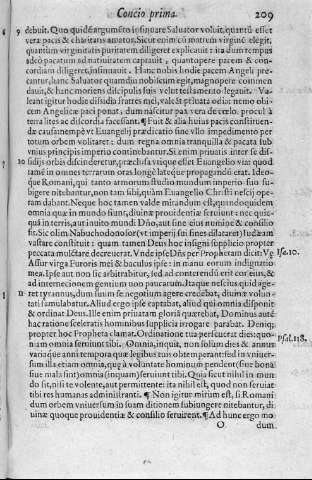 Concio prima. 209
9 debuit. Quo quidē argumēto insinuare Saluator voluit, quātū esset
vera pacis & charitatis amator. Sicut enim cū matrem virginē elegit,
quantum virginitatis puritatem diligeret explicauit: ita dum tempus
adeò pacatum ad natiuitatem captauit, quantopere pacem & con-
cordiam diligeret, insinuauit. Hanc nobis hodie pacem Angeli pre-
cantur, hanc Saluator quamdiu nobiscum egit, magnopere commen
dauit, & hanc moriens discipulis suis velut testamento legauit. Va-
leant igitur hodie dissidia fratres mei, valeāt priuata odia: nemo ho-
die Angelicæ paci ponat, dum nascitur pax vera de cœlo. procul à
terra lites ac discordia facessant. ¶ Fuit & alia huius pacis constituen-
dæ causa: nempè vt Euangelij prædicatio sine vllo impedimento per
totum orbem volitaret: dum regna omnia tranquilla & pacata sub
vnius principis imperio continebantur. Si enim priuatis inter se dis-
10 sidijs orbis discinderetur, præclusa vtique esset Euangelio vias quod
tamē in omnes terrarum oras longè lateque propagandū erat. Ideo-
que Romani, qui tanto armorum studio mundum imperio suo su-
bigere nitebantur, non tam sibi, quàm Euangelio Christi nesci ope-
ram dabant. Neque hoc tamen valde mirandum est, quandoquidem
omnia quæ in mundo fiunt, diuinæ prouidentiæ seruiunt: nec quic-
quā in terris, aut inuito mundi Dño, aut sine eius numine & consilio
fit. Sic olim Nabuchodonosor (vt imperij sui fines dilataret) Iudæam
vastare constituit: quam tamen Deus hoc insigni supplicio propter
peccata mulctare decreuerat. Vnde ipse Dñs per Prophetam dicit: Vę Isa. 10.
Assur virga Furoris mei & baculus ipse: in manu eorum indignatio
mea. Ipse aut non sic arbitrabitur, sed ad conterendū erit cor eius, &
ad internecionem gentium non paucarum. Itaque nescius quid age-
11 ret tyrannus, dum suum se negotium agere credebat, diuinæ volun-
tati famulabatur. Aliud ergo ipse captabat, aliud qui omnia disponit
& ordinat Deus. Ille enim priuatam gloriā quærebat, Dominus autē
hac ratione sceleratis hominibus supplicia irrogare parabat. Deniq;
propter hoc Propheta clamat. Ordinatione tua perseuerat dies: quo- Psal. 118.
niam omnia seruiunt tibi. Omnia, inquit, non solùm dies & annus
variaque anni tempora quæ legibus tuis obtemperant: sed in vniuer-
sum illa etiam omnia, quę à voluntate hominum pendent (siue bona
siue mala sint) omnia (inquam) seruiunt tibi. Quia sicut nihil in mun
do fit, nisi te volente, aut permittente: ita nihil est, quod non seruiat
tibi res humanas administranti. ¶ Non igitur mirum est, si Romani
dum orbem vniuersum in suam ditionem subiungere nitebantur, di-
uinæ quoque prouidentiæ & consilio seruirent. ¶ Ad hunc ergo mo
O. dum